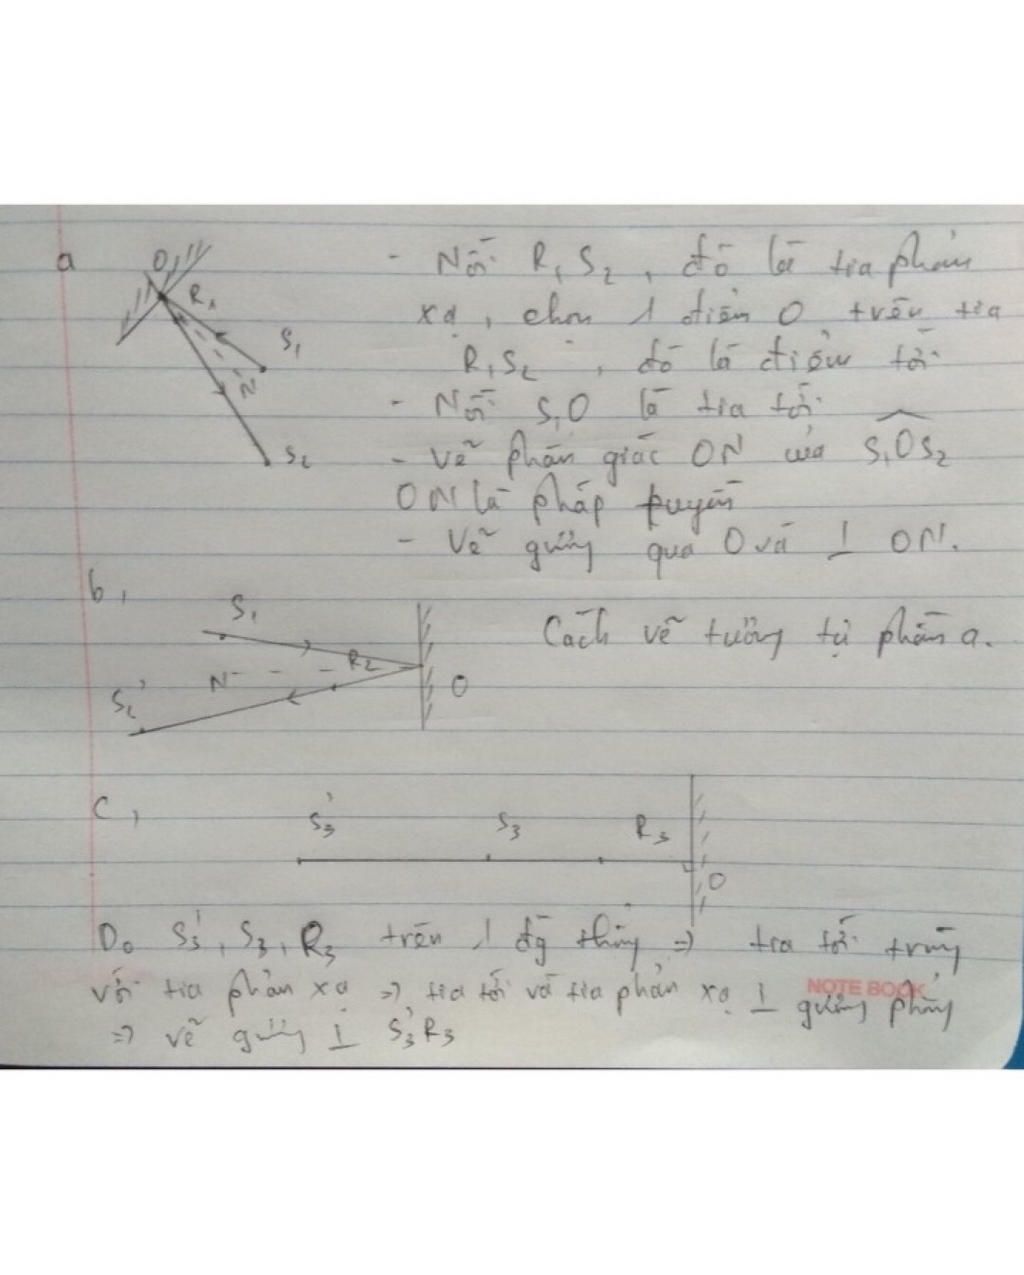 a
O
R₁
S₁
N
S₂
- Nối R₁S₂, đó là tia phản
xạ, chọn 1 điểm O trên tia
R₁S₂, đó là điểm tới.
- Nối S₁O là tia tới.
- Vẽ phân giác ON của S₁OS₂
ON là pháp tuyến
- Vẽ gương qua O và ⊥ ON.
b,
S₁
R₂
N
S₂'
O
Cách vẽ tương tự phần a.
c,
S₃' S₃ R₃
O
Do S₃', S₃, R₃ trên 1 đg thẳng => tia tới trùng
với tia phản xạ => tia tới và tia phản xạ ⊥ gương phẳng
NOTE BOOK
=> vẽ gương ⊥ S₃'R₃